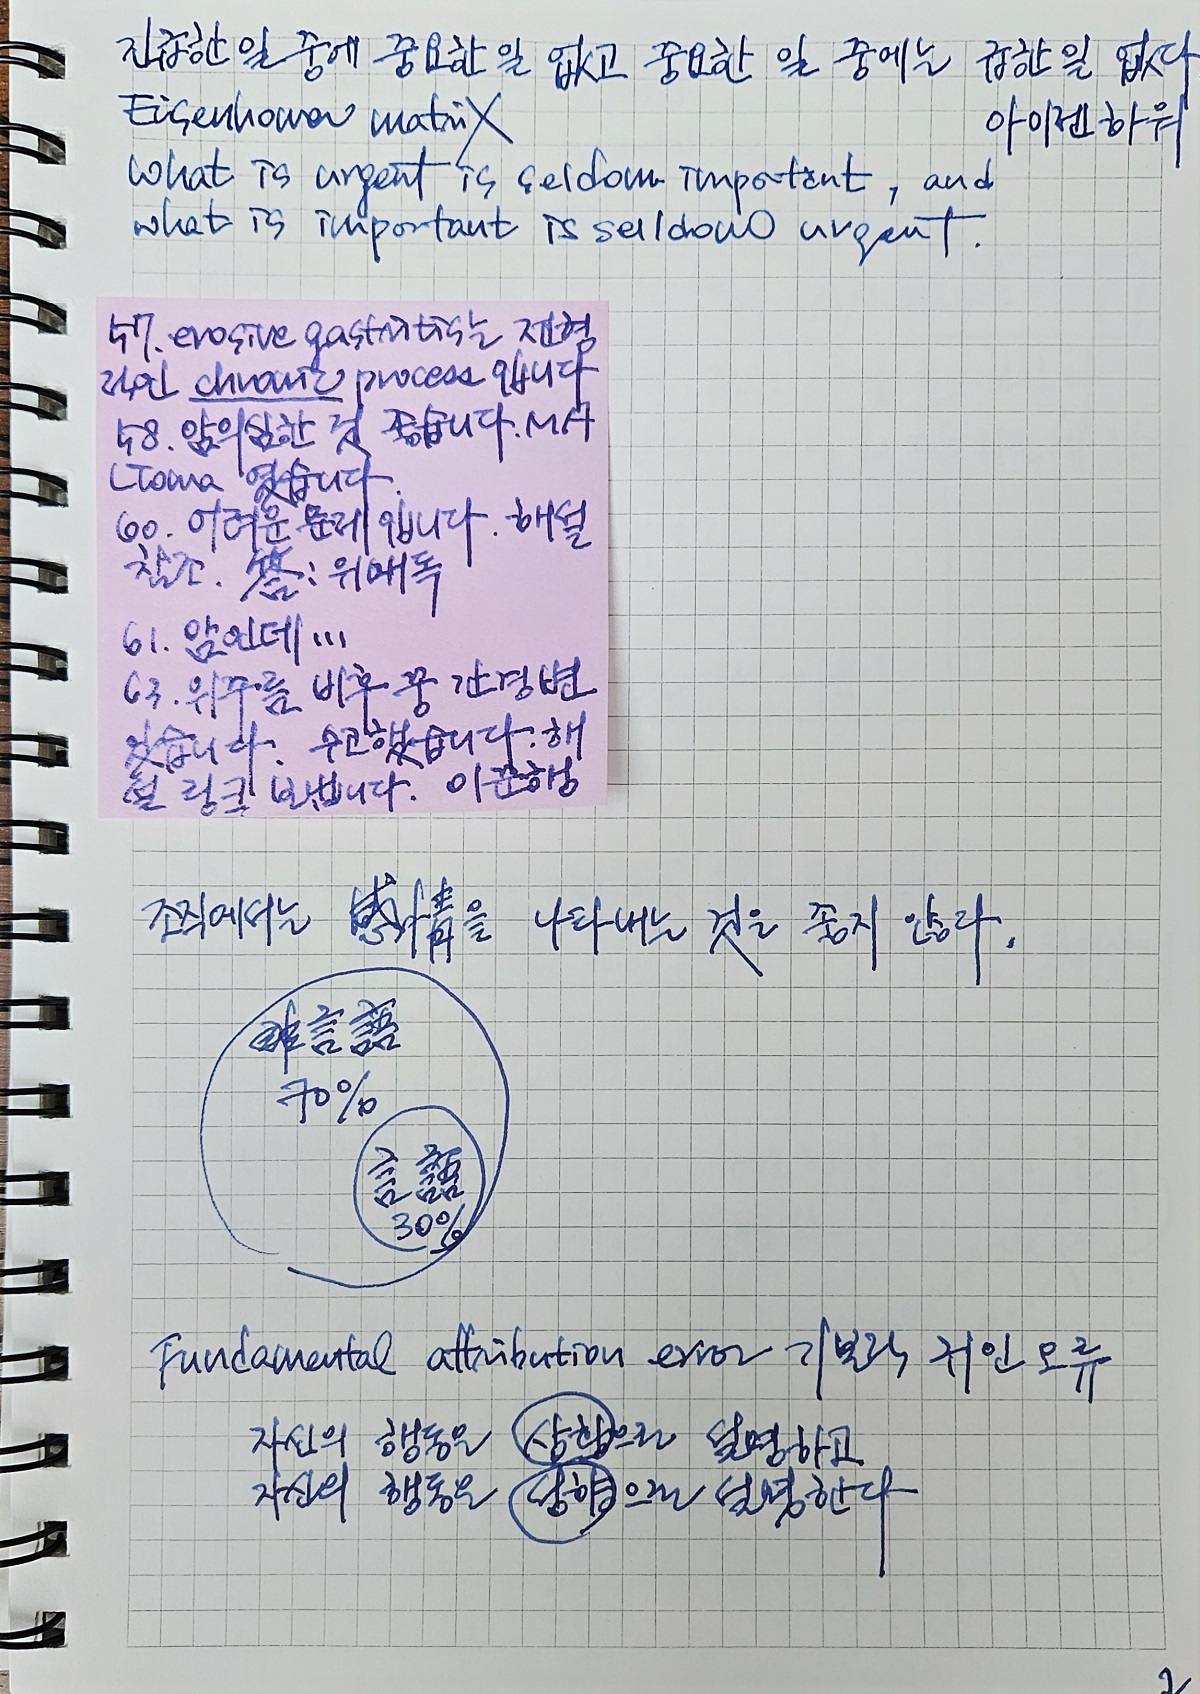 진급한 일 중에 중요한 일 없고 중요한 일 중에는 급한 일 없다
Eisenhower matrix 아이젠하워
What is urgent is seldom important, and
what is important is selldom urgent.
57. erosive gastritis는 전형
적인 chronic process 입니다
58. 암의심한 것 좋습니다. MA
LToma 였습니다.
60. 어려운 문제 입니다. 해설
참조. 答: 위매독
61. 암인데...
63. 위주름 비후 중 간경변
있습니다. 수고했습니다. 해
설 링크 보냅니다. 이준행
조직에서는 感情을 나타내는 것은 좋지 않다.
非言語
70%
言語
30%
Fundamental attribution error 기본적 귀인 오류
자신의 행동은 상황으로 설명하고
자신의 행동은 성향으로 설명한다
2